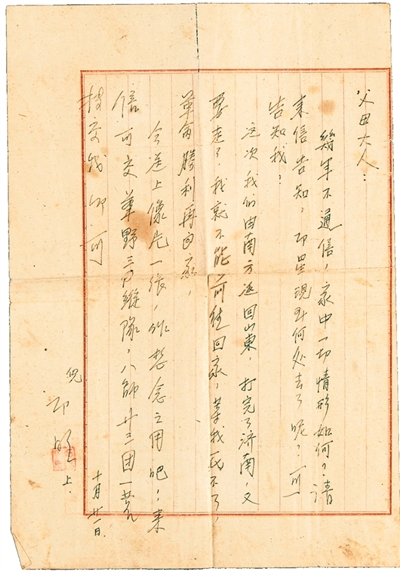 父母大人:
幾年不通信,家中一切情形如何?請
来信告知,现到何处去了呢?可一
告知我?
这次我们由南方返回山東,打完了济南,又
要走了,我就不能前往回家,等我
革命勝利再回家,
今送上像片一張,作想念之用吧!来
信可交華野三縱隊,八師廿三团一
轉交我即可
兒 上
十月廿一日.